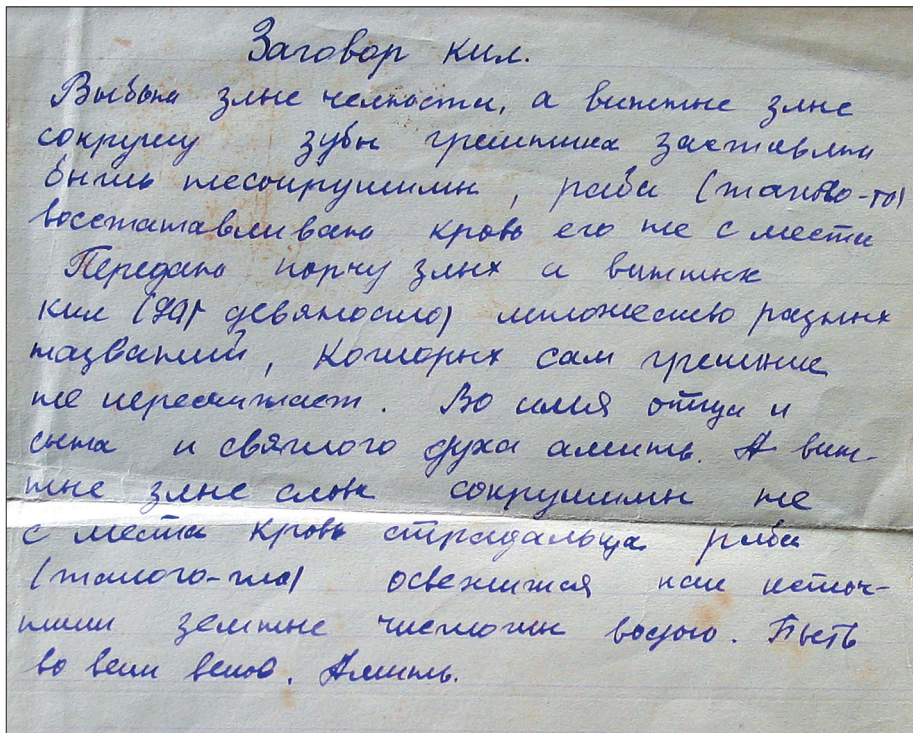 Заговор кил.
Выбью злые челюсти, а винные злые
сокрушу зубы грешника заставлю
быть несокрушимы, раба (такого-то)
восстанавливаю кровь его же с места
Передаю порчу злых и винных
кил (90/ девяносто) множество разных
названий, которых сам грешник
не пересчитает. Во имя отца и
сына и святого духа аминь. А вин-
ные злые слова сокрушимы же
с места кровь страдальца раба
(такого-то) освежится как источ-
ники земные чистою водою. Быть
во веки веков. Аминь.